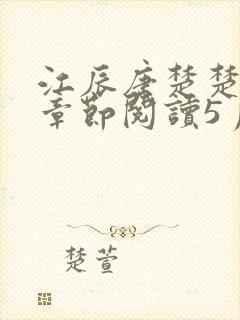 江辰唐楚楚
章節閱讀5
楚萱